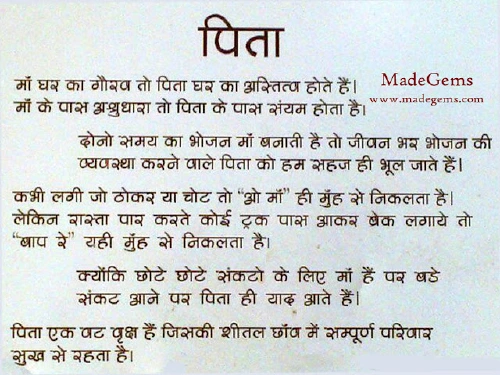 पिता
माँ घर का गौरव तो पिता घर का अस्तित्व होते हैं।
माँ के पास अश्रुधारा तो पिता के पास संयम होता है।
MadeGems
www.madegems.com
दोनो समय का भोजन माँ बनाती है तो जीवन भर भोजन की
व्यवस्था करने वाले पिता को हम सहज ही भूल जाते हैं।
कभी लगी जो ठोकर या चोट तो “ओ माँ” ही मुँह से निकलता है।
लेकिन रास्ता पार करते कोई ट्रक पास आकर ब्रेक लगाये तो
“बाप रे” यही मुँह से निकलता है।
क्योंकि छोटे छोटे संकटो के लिए माँ हैं पर बडे
संकट आने पर पिता ही याद आते हैं।
पिता एक वट वृक्ष हैं जिसकी शीतल छाँव में सम्पूर्ण परिवार
सुख से रहता है।